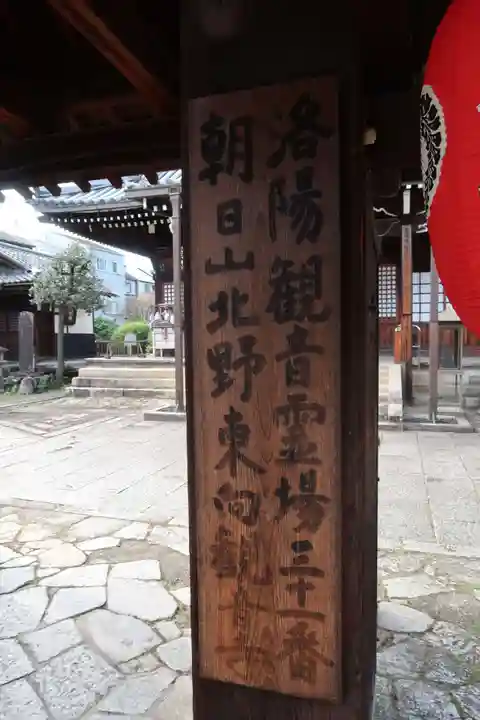 洛陽観音霊場三十一番
朝日山北野東向観音寺